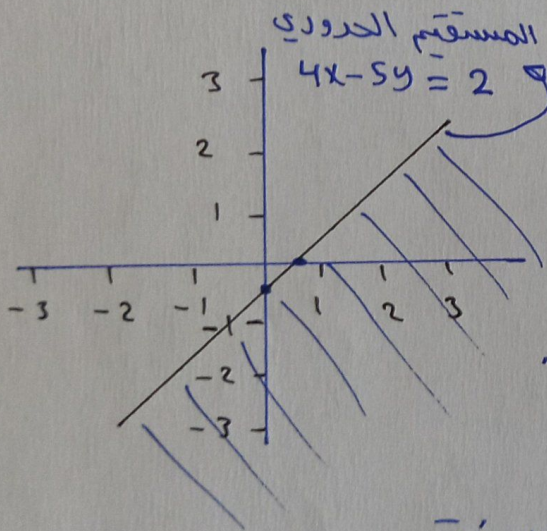 المستقيم الحدودي
4x-5y = 2
3
2
1
-3 -2 -1 1 2 3
-1
-2
-3